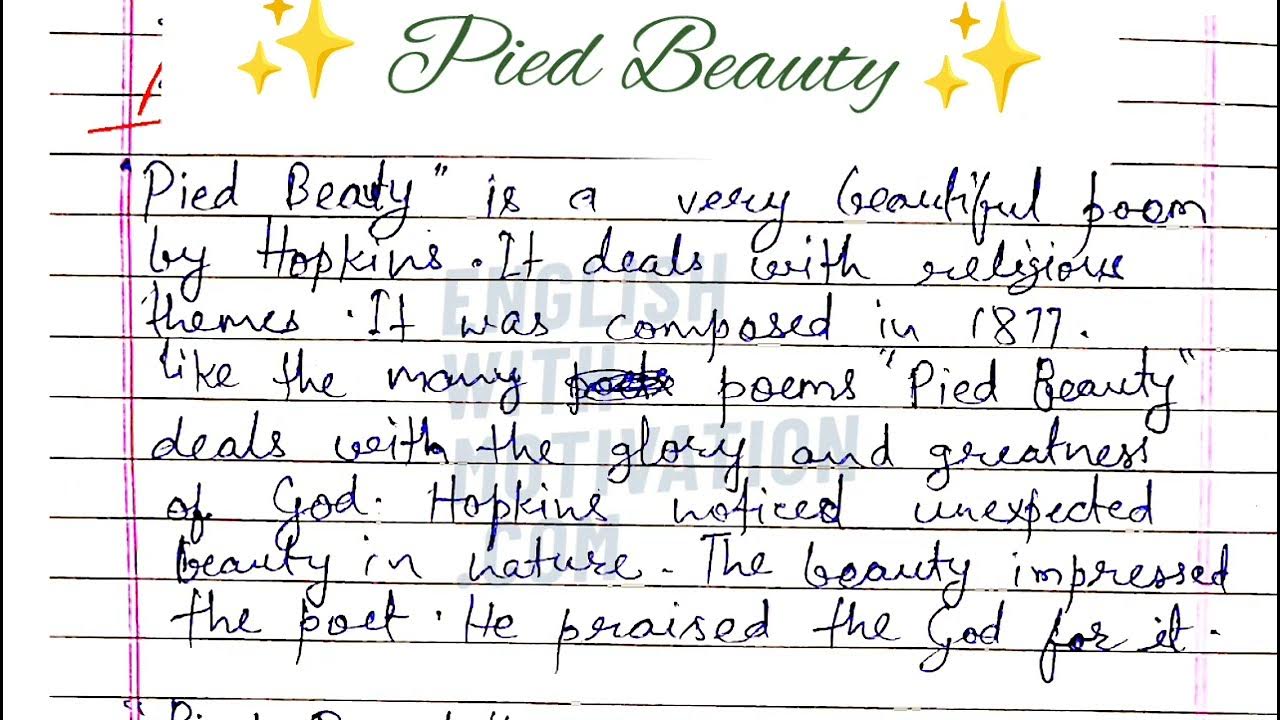 Pied Beauty
"Pied Beauty" is a very beautiful poom
by Hopkins. It deals with religious
themes. It was composed in 1877.
like the many poems "Pied Beauty"
deals with the glory and greatness
of God. Hopkins noticed unexpected
beauty in nature. The beauty impressed
the poet. He praised the God for it.
ENGLISH
WITH
MOTIVATION
.COM